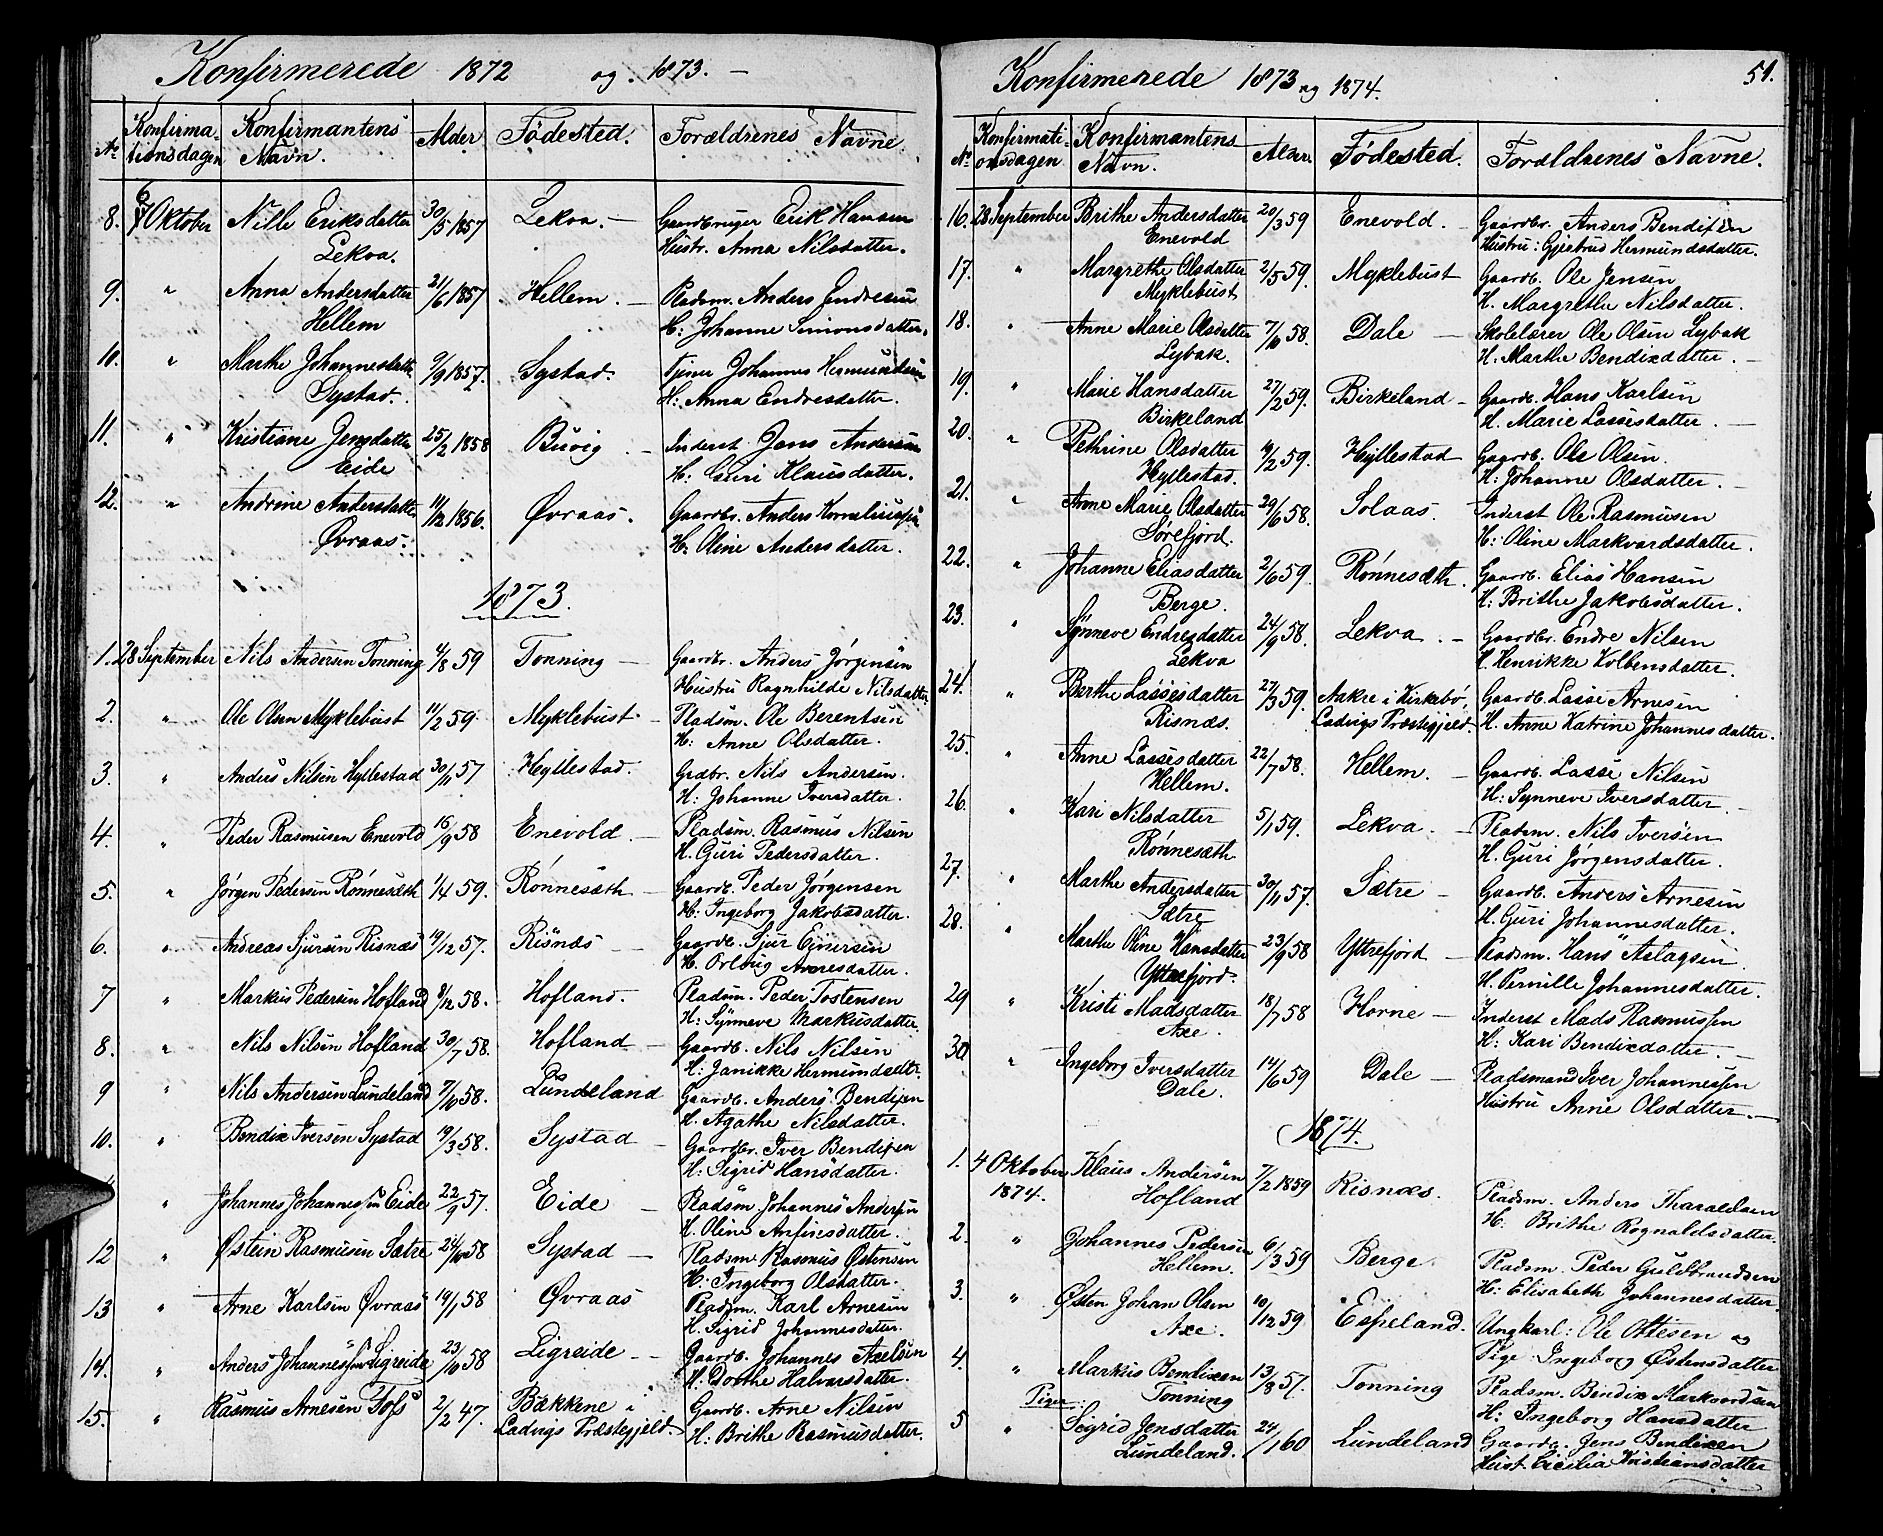 Konfirmerede 1872 og 1873. —
No Konfirma- Konfirmantens Alder Fødested. Forældrenes Navne
tionsdagen Navn.
8. 6 Oktober Nille Eriksdatter 30/5 1857 Lekva. — Gaardbruger Erik Hansen
Lekva. Hustr. Anna Nilsdatter.
9. " Anna Andersdatter 21/6 1857 Hellem. — Pladsm. Anders Endresen
Hellem H: Johanne Simonsdatter.
10. " Marthe Johannesdatt. 9/9 1857. Systad. Tjener Johannes Hermundsen
Systad. H: Anna Endresdatter.
11. " Kristiane Jensdatter 25/2 1858 Buvig — Inderst Jens Andersen
Eide H: Guri Klausdatter.
12. " Andrine Andersdatter 11/12 1856. Øvraas. Gaardbr. Anders Korneliussen
Øvraas. H: Oline Andersdatter.
1873.
1. 28 September Nils Andersen Tonning 4/8 59 Tonning — Gaardbr. Anders Jørgensen
Hustru Ragnhilde Nilsdatter
2. " Ole Olsen Myklebust 11/2 59. Myklebust — Pladsm. Ole Berentsen
H: Anne Olsdatter.
3. " Anders Nilsen Hyllestad 30/11 57 Hyllestad. Grdbr. Nils Andersen.
H: Johanne Iversdatter.
4. " Peder Rasmusen Enevold 16/9 58 Enevold. — Pladsm. Rasmus Nilsen
H. Guri Pedersdatter.
5. " Jørgen Pedersen Rønnesæth 1/4 59. Rønnesæth — Gaardb. Peder Jørgensen
H: Ingeborg Jakobsdatter.
6. " Andreas Sjursen Risnæs 19/12 57. Risnæs — Gaardb. Sjur Einersen
H. Orlaug Arnesdatter.
7 " Markus Pedersen Hofland 8/12 58. Hofland. Pladsm. Peder Tostensen
H: Synneve Markusdatter.
8. " Nils Nilsen Hofland 30/7 58. Hofland — Gaardb. Nils Nilsen
H: Janikke Hermundsdtr.
9 " Nils Andersen Lundeland 7/10 58. Lundeland Gaardb. Anders Bendixen
H. Agathe Nilsdatter.
10. " Bendix Iversen Systad 19/3 58. Systad — Gaardbr. Iver Bendixen
H: Sigrid Hansdatter.
" Johannes Johannessen Eide 22/9 57. Eide — Pladsm Johannes Andersen
H. Oline Anfinsdatter.
12 " Østein Rasmusen Sætre 24/10 58 Systad — Pladsm Rasmus Østensen
H: Ingeborg Olsdatter.
13 " Arne Karlsen Øvraas 19/1 58 Øvraas Pladsm. Karl Arnesen
H. Sigrid Johannesdatter.
14. " Anders Johannessen Ligreide 23/10 58 Ligreide — Gaardb. Johannes Axelsen
H. Dorthe Halvarsdatter.
15. " Rasmus Arnesen Foss 2/2 47. Bækkene i Gaardb. Arne Nilsen
Ladvigs Præstegjeld. H: Brithe Rasmusdatter.
Konfirmerede 1873 og 1874. 51.
No Konfirmati- Konfirmantens Alder. Fødested. Forældrenes Navne.
onsdagen Navn.
16. 28 September Brithe Andersdatter 20/3 59 Enevold. — Gaardbr. Anders Bendixen
Enevold Hustru: Gjertrud Hermundsdatter.
17. " Margrethe Olsdatter 2/5 59. Myklebust Gaardb. Ole Jensen
Myklebust H. Margrethe Nilsdatter.
18. " Anne Marie Olsdatter 7/10 58. Dale — Skolelærer Ole Olsen Lybak
Lybak. H. Marthe Bendixdatter. —
19. " Marie Hansdatter 27/2 59. Birkeland — Gaardb. Hans Karlsen
Birkeland H. Marie Lassesdatter. —
20. " Pethrine Olsdatter 19/2 59. Hyllestad Gaardb. Ole Olsen.
Hyllestad. H: Johanne Olsdatter. —
21. " Anne Marie Olsdatter 29/6 58. Solaas. Inderst Ole Rasmusen
Sørefjord. H: Oline Markvardsdatter.
22. " Johanne Eliasdatter 2/6 59. Rønnesæth. Gaardb. Elias Hansen
Berge. H: Brithe Jakobsdatter.
23. " Synneve Endresdatter 24/9 58. Lekva. — Gaardbr. Endre Nilsen
Lekva H. Henrikke Kolbensdatter.
24. " Berthe Lassesdatter 27/3 59. Aakre i Kirkebø, Gaardb. Lasse Arnesen
Risnæs. Ladvigs Præstegjeld. H. Anne Katrine Johannesdatter.
25. " Anne Lassesdatter 22/7 58. Hellem. — Gaardb. Lasse Nilsen
Hellem. H: Synneve Iversdatter —
26. " Kari Nilsdatter 5/1 59. Lekva. — Pladsm. Nils Iversen
Rønnesæth H. Guri Jørgensdatter.
27. " Marthe Andersdatter 30/11 57. Sætre — Gaardb. Anders Arnesen
Sætre H. Guri Johannesdatter.
28. " Marthe Oline Hansdatter 23/9 58 Yttrefjord — Pladsm. Hans Aslagsen
Yttrefjord. H. Pernille Johannesdatter.
29 " Kristi Madsdatter 18/7 58 Horne — Inderst Mads Rasmussen
Axe. H: Kari Bendixdatter. —
30. " Ingeborg Iversdatter 14/6 59 Dale — Pladsmand Iver Johannessen
Dale. Hustru Anne Olsdatter. —
1874.
1. 4 Oktober Klaus Andersen 7/2 1859 Risnæs. Pladsm. Anders Tharaldsen
1874. Hofland H. Brithe Rognaldsdatter.
2. " Johannes Pedersen 6/3 59 Berge. Pladsm. Peder Guldbrandsen
Hellem. H: Elisabeth Johannesdatter.
3. " Østen Johan Olsen 10/12 59 Espeland. Ungkarl: Ole Ottesen og
Axe. Pige Ingeborg Østensdatter
4. " Markus Bendixen 13/8 57. Tonning Pladsm. Bendix Markvardsen
Piger. Tonning H: Ingeborg Hansdatter
5 " Sigrid Jensdatter 24/1 60 Lundeland Gaardb. Jens Bendixen
Lundeland. Hust. Cicilia Kristiansdatter